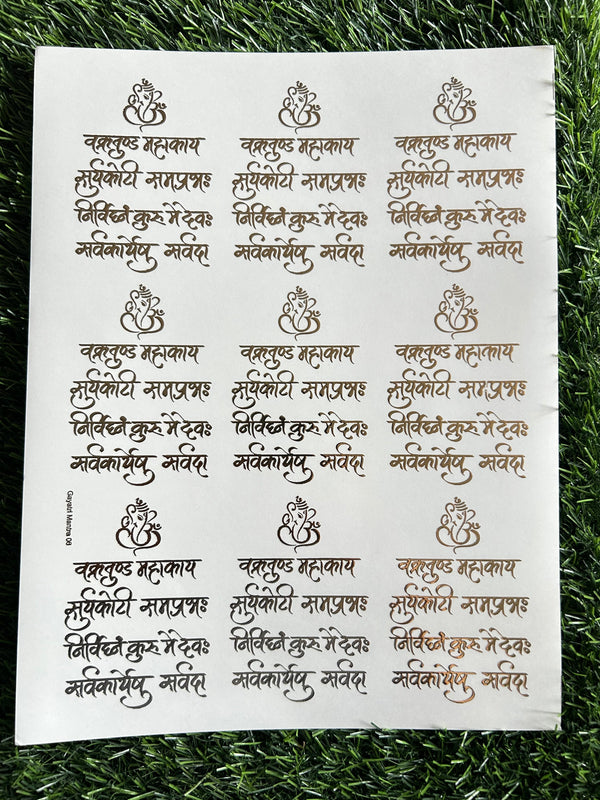 वक्रतुण्ड महाकाय
सुर्यकोटी समप्रभः
निर्विघ्नं कुरु मे देवः
सर्वकार्येषु सर्वदा
वक्रतुण्ड महाकाय
सुर्यकोटी समप्रभः
निर्विघ्नं कुरु मे देवः
सर्वकार्येषु सर्वदा
वक्रतुण्ड महाकाय
सुर्यकोटी समप्रभः
निर्विघ्नं कुरु मे देवः
सर्वकार्येषु सर्वदा
वक्रतुण्ड महाकाय
सुर्यकोटी समप्रभः
निर्विघ्नं कुरु मे देवः
सर्वकार्येषु सर्वदा
वक्रतुण्ड महाकाय
सुर्यकोटी समप्रभः
निर्विघ्नं कुरु मे देवः
सर्वकार्येषु सर्वदा
वक्रतुण्ड महाकाय
सुर्यकोटी समप्रभः
निर्विघ्नं कुरु मे देवः
सर्वकार्येषु सर्वदा
वक्रतुण्ड महाकाय
सुर्यकोटी समप्रभः
निर्विघ्नं कुरु मे देवः
सर्वकार्येषु सर्वदा
वक्रतुण्ड महाकाय
सुर्यकोटी समप्रभः
निर्विघ्नं कुरु मे देवः
सर्वकार्येषु सर्वदा
वक्रतुण्ड महाकाय
सुर्यकोटी समप्रभः
निर्विघ्नं कुरु मे देवः
सर्वकार्येषु सर्वदा
Gayatri Mantra 08